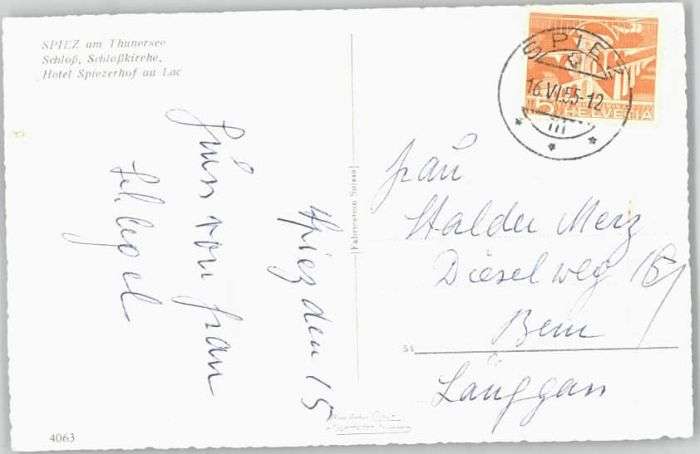 SPIEZ am Thunersee
Schloß, Schloßkirche,
Hotel Spiezerhof au Lac
Spiez den 15
Gruss von Frau
Schlegel
SPIEZ
16.VI.55-12
5 HELVETIA
Frau
Walder Merz
Dieselweg 15
Bern
Länggass
4063